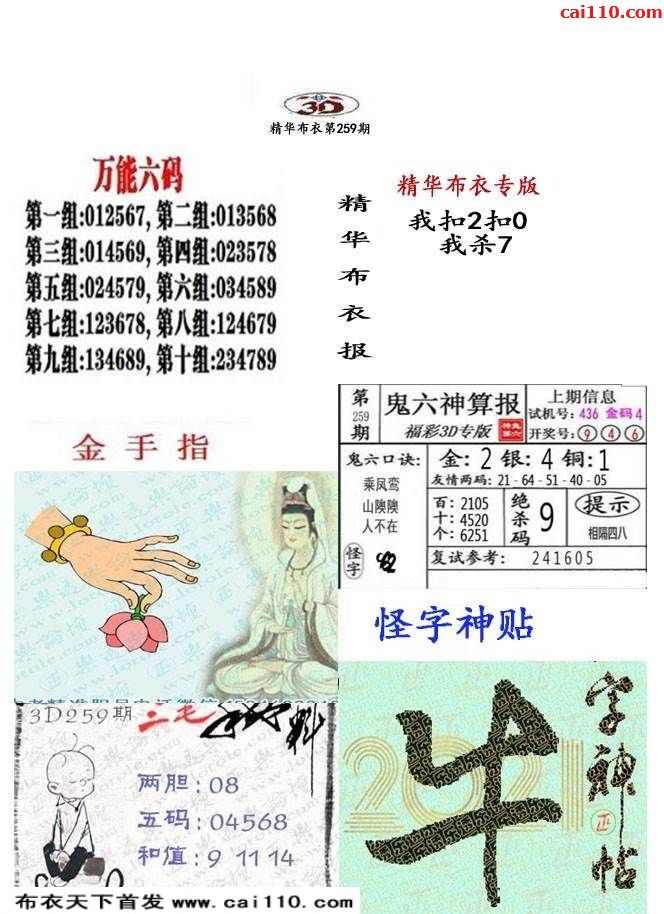 cai110.com
3D
精华布衣第259期
万能六码
第一组:012567, 第二组:013568
第三组:014569, 第四组:023578
第五组:024579, 第六组:034589
第七组:123678, 第八组:124679
第九组:134689, 第十组:234789
精华布衣报
精华布衣专版
我扣2扣0
我杀7
金手指
第259期
鬼六神算报
福彩3D专版
上期信息
试机号: 436 金码 4
开奖号: 9 4 6
鬼六口诀:
乘凤鸾
山陝陝
人不在
怪字
金: 2 银: 4 铜: 1
友情两码: 21-64-51-40-05
百: 2105
十: 4520
个: 6251
绝杀码 9
提示
相隔四八
复试参考: 241605
怪字神贴
3D259期
二毛
料
两胆: 08
五码: 04568
和值: 9 11 14
2021
字神帖
正
布衣天下首发 www.cai110.com